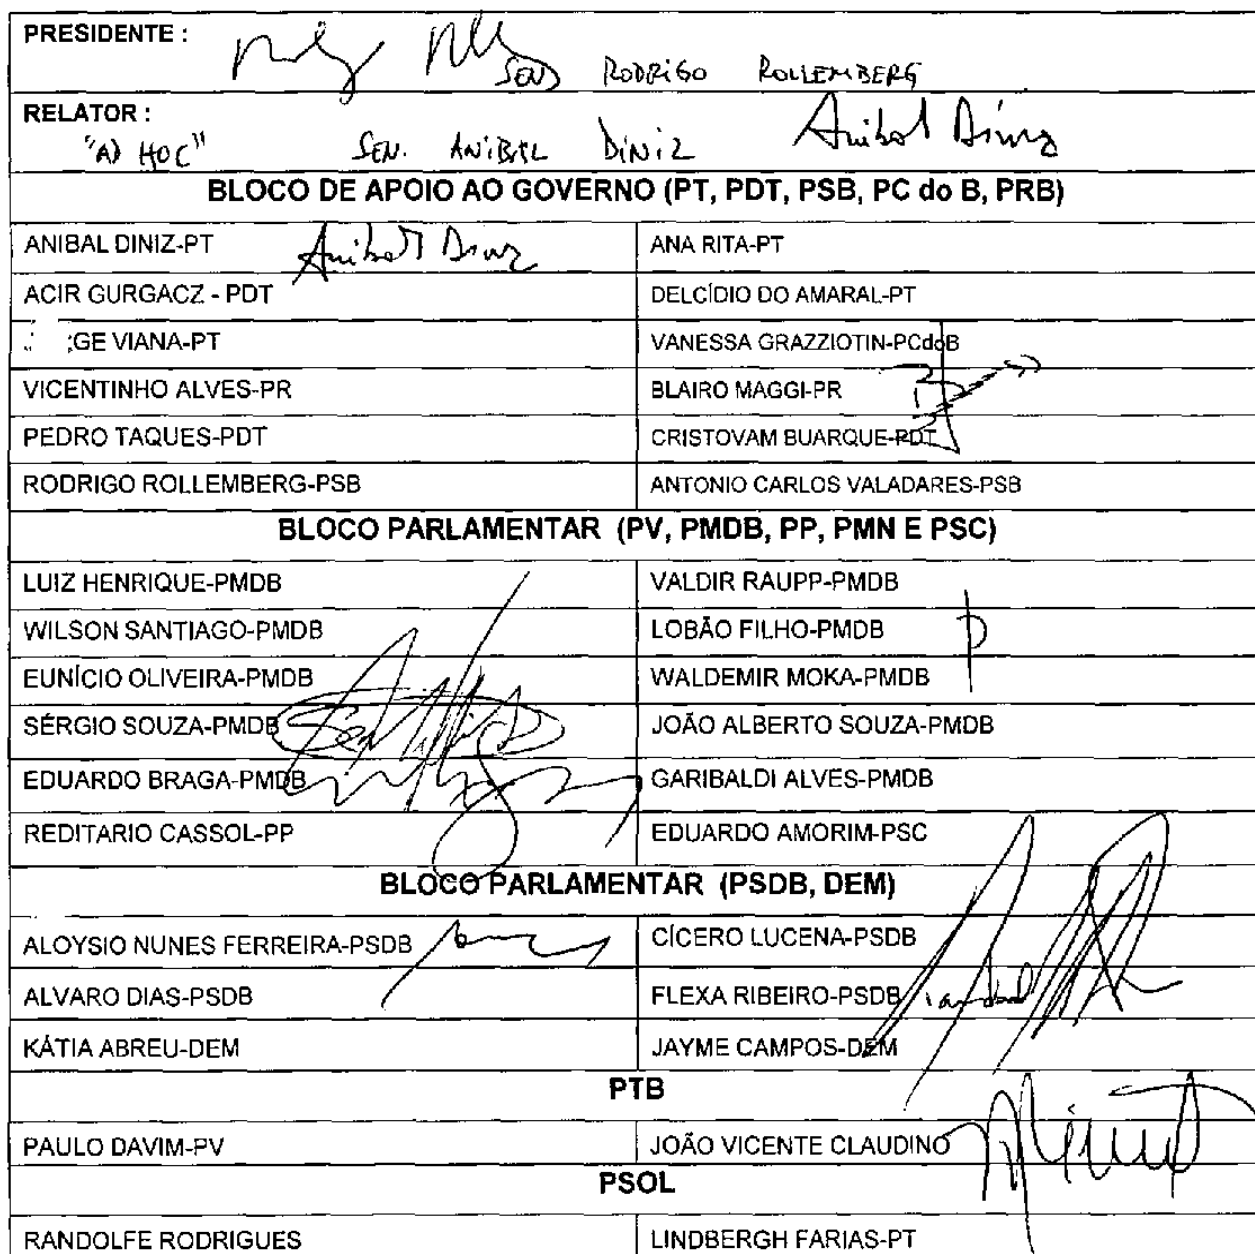 PRESIDENTE :
SEN RODRIGO ROLLEMBERG
RELATOR :
"AD HOC" SEN. ANIBAL DINIZ Anibal Diniz
BLOCO DE APOIO AO GOVERNO (PT, PDT, PSB, PC do B, PRB)
ANIBAL DINIZ-PT Anibal Diniz ANA RITA-PT
ACIR GURGACZ - PDT DELCÍDIO DO AMARAL-PT
GE VIANA-PT VANESSA GRAZZIOTIN-PCdoB
VICENTINHO ALVES-PR BLAIRO MAGGI-PR
PEDRO TAQUES-PDT CRISTOVAM BUARQUE-PDT
RODRIGO ROLLEMBERG-PSB ANTONIO CARLOS VALADARES-PSB
BLOCO PARLAMENTAR (PV, PMDB, PP, PMN E PSC)
LUIZ HENRIQUE-PMDB VALDIR RAUPP-PMDB
WILSON SANTIAGO-PMDB LOBÃO FILHO-PMDB
EUNÍCIO OLIVEIRA-PMDB WALDEMIR MOKA-PMDB
SÉRGIO SOUZA-PMDB JOÃO ALBERTO SOUZA-PMDB
EDUARDO BRAGA-PMDB GARIBALDI ALVES-PMDB
REDITARIO CASSOL-PP EDUARDO AMORIM-PSC
BLOCO PARLAMENTAR (PSDB, DEM)
ALOYSIO NUNES FERREIRA-PSDB CÍCERO LUCENA-PSDB
ALVARO DIAS-PSDB FLEXA RIBEIRO-PSDB
KÁTIA ABREU-DEM JAYME CAMPOS-DEM
PTB
PAULO DAVIM-PV JOÃO VICENTE CLAUDINO
PSOL
RANDOLFE RODRIGUES LINDBERGH FARIAS-PT